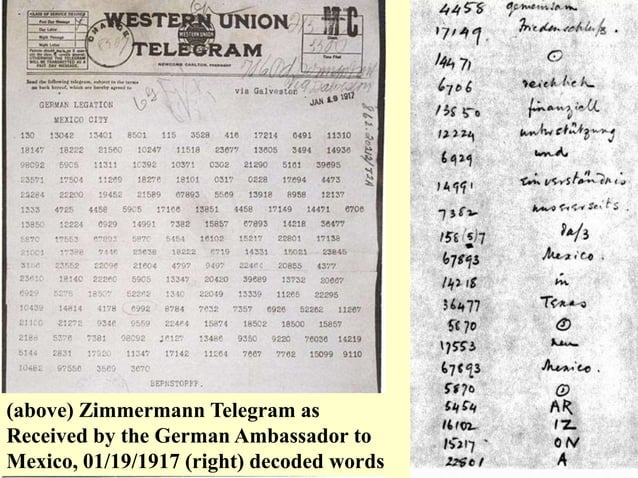 CLASS OF SERVICE DESIRED
Fast Day Message
Day Letter
Night Message
Night Letter
WESTERN UNION
WESTERN UNION
TELEGRAM
NEWCOMB CARLTON, PRESIDENT
Send the following telegram, subject to the terms
on back hereof, which are hereby agreed to
via Galveston
JAN 19 1917
GERMAN LEGATION
MEXICO CITY
130 13042 13401 8501 115 3528 416 17214 6491 11310
18147 18222 21560 10247 11518 23677 13605 3494 14936
98092 5905 11311 10392 10371 0302 21290 5161 39695
23571 17504 11269 18276 18101 0317 0228 17694 4473
22284 22200 19452 21589 67893 5569 13918 8958 12137
1333 4725 4458 5905 17166 13851 4458 17149 14471 6706
13850 12224 6929 14991 7382 15857 67893 14218 36477
5870 17553 67893 5870 5454 16102 15217 22801 17138
21001 17388 7446 23638 18222 6719 14331 15021 23845
3156 23552 22096 21604 4797 9497 22464 20855 4377
23610 18140 22260 5905 13347 20420 39689 13732 20667
6929 5275 18507 52262 1340 22049 13339 11265 22295
10439 14814 4178 6992 8784 7632 7357 6926 52262 11267
21100 21272 9346 9559 22464 15874 18502 18500 15857
2188 5376 7381 98092 16127 13486 9350 9220 76036 14219
5144 2831 17920 11347 17142 11264 7667 7762 15099 9110
10482 97556 3569 3670
BERNSTORFF.
(above) Zimmermann Telegram as
Received by the German Ambassador to
Mexico, 01/19/1917 (right) decoded words
4458 gemeinsam
17149 Friedensschluß.
14471 ⊙
6706 reichlich
13850 finanziell
12224 unterstützung
6929 und
14991 einverständnis
7382 unsererseits.
158(5)7 daß
67893 Mexico.
14218 in
36477 Texas
5870 ⊙
17553 neu
67893 Mexico.
5870 ⊙
5454 AR
16102 IZ
15217 ON
22801 A